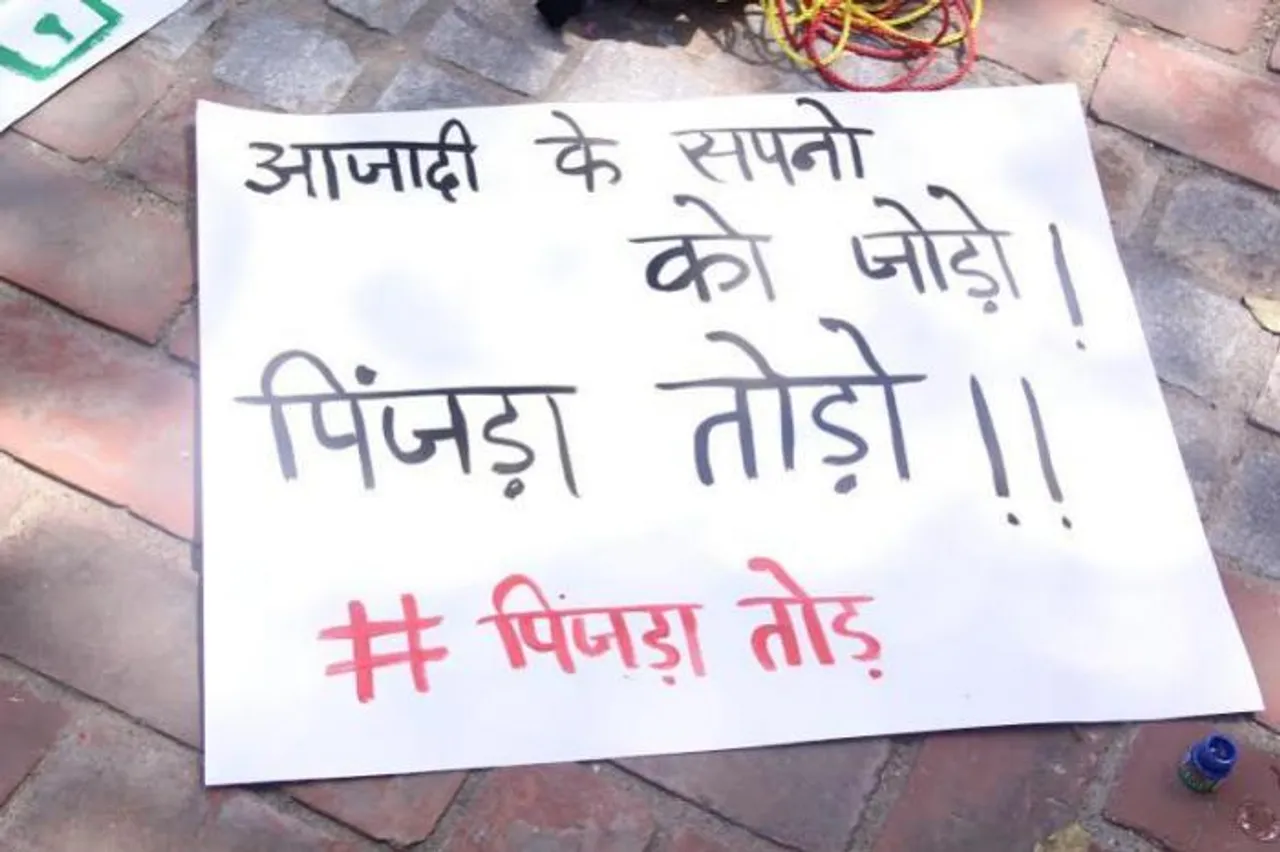 आजादी के सपनो
को जोड़ो!
पिंजड़ा तोड़ो!!
# पिंजड़ा तोड़